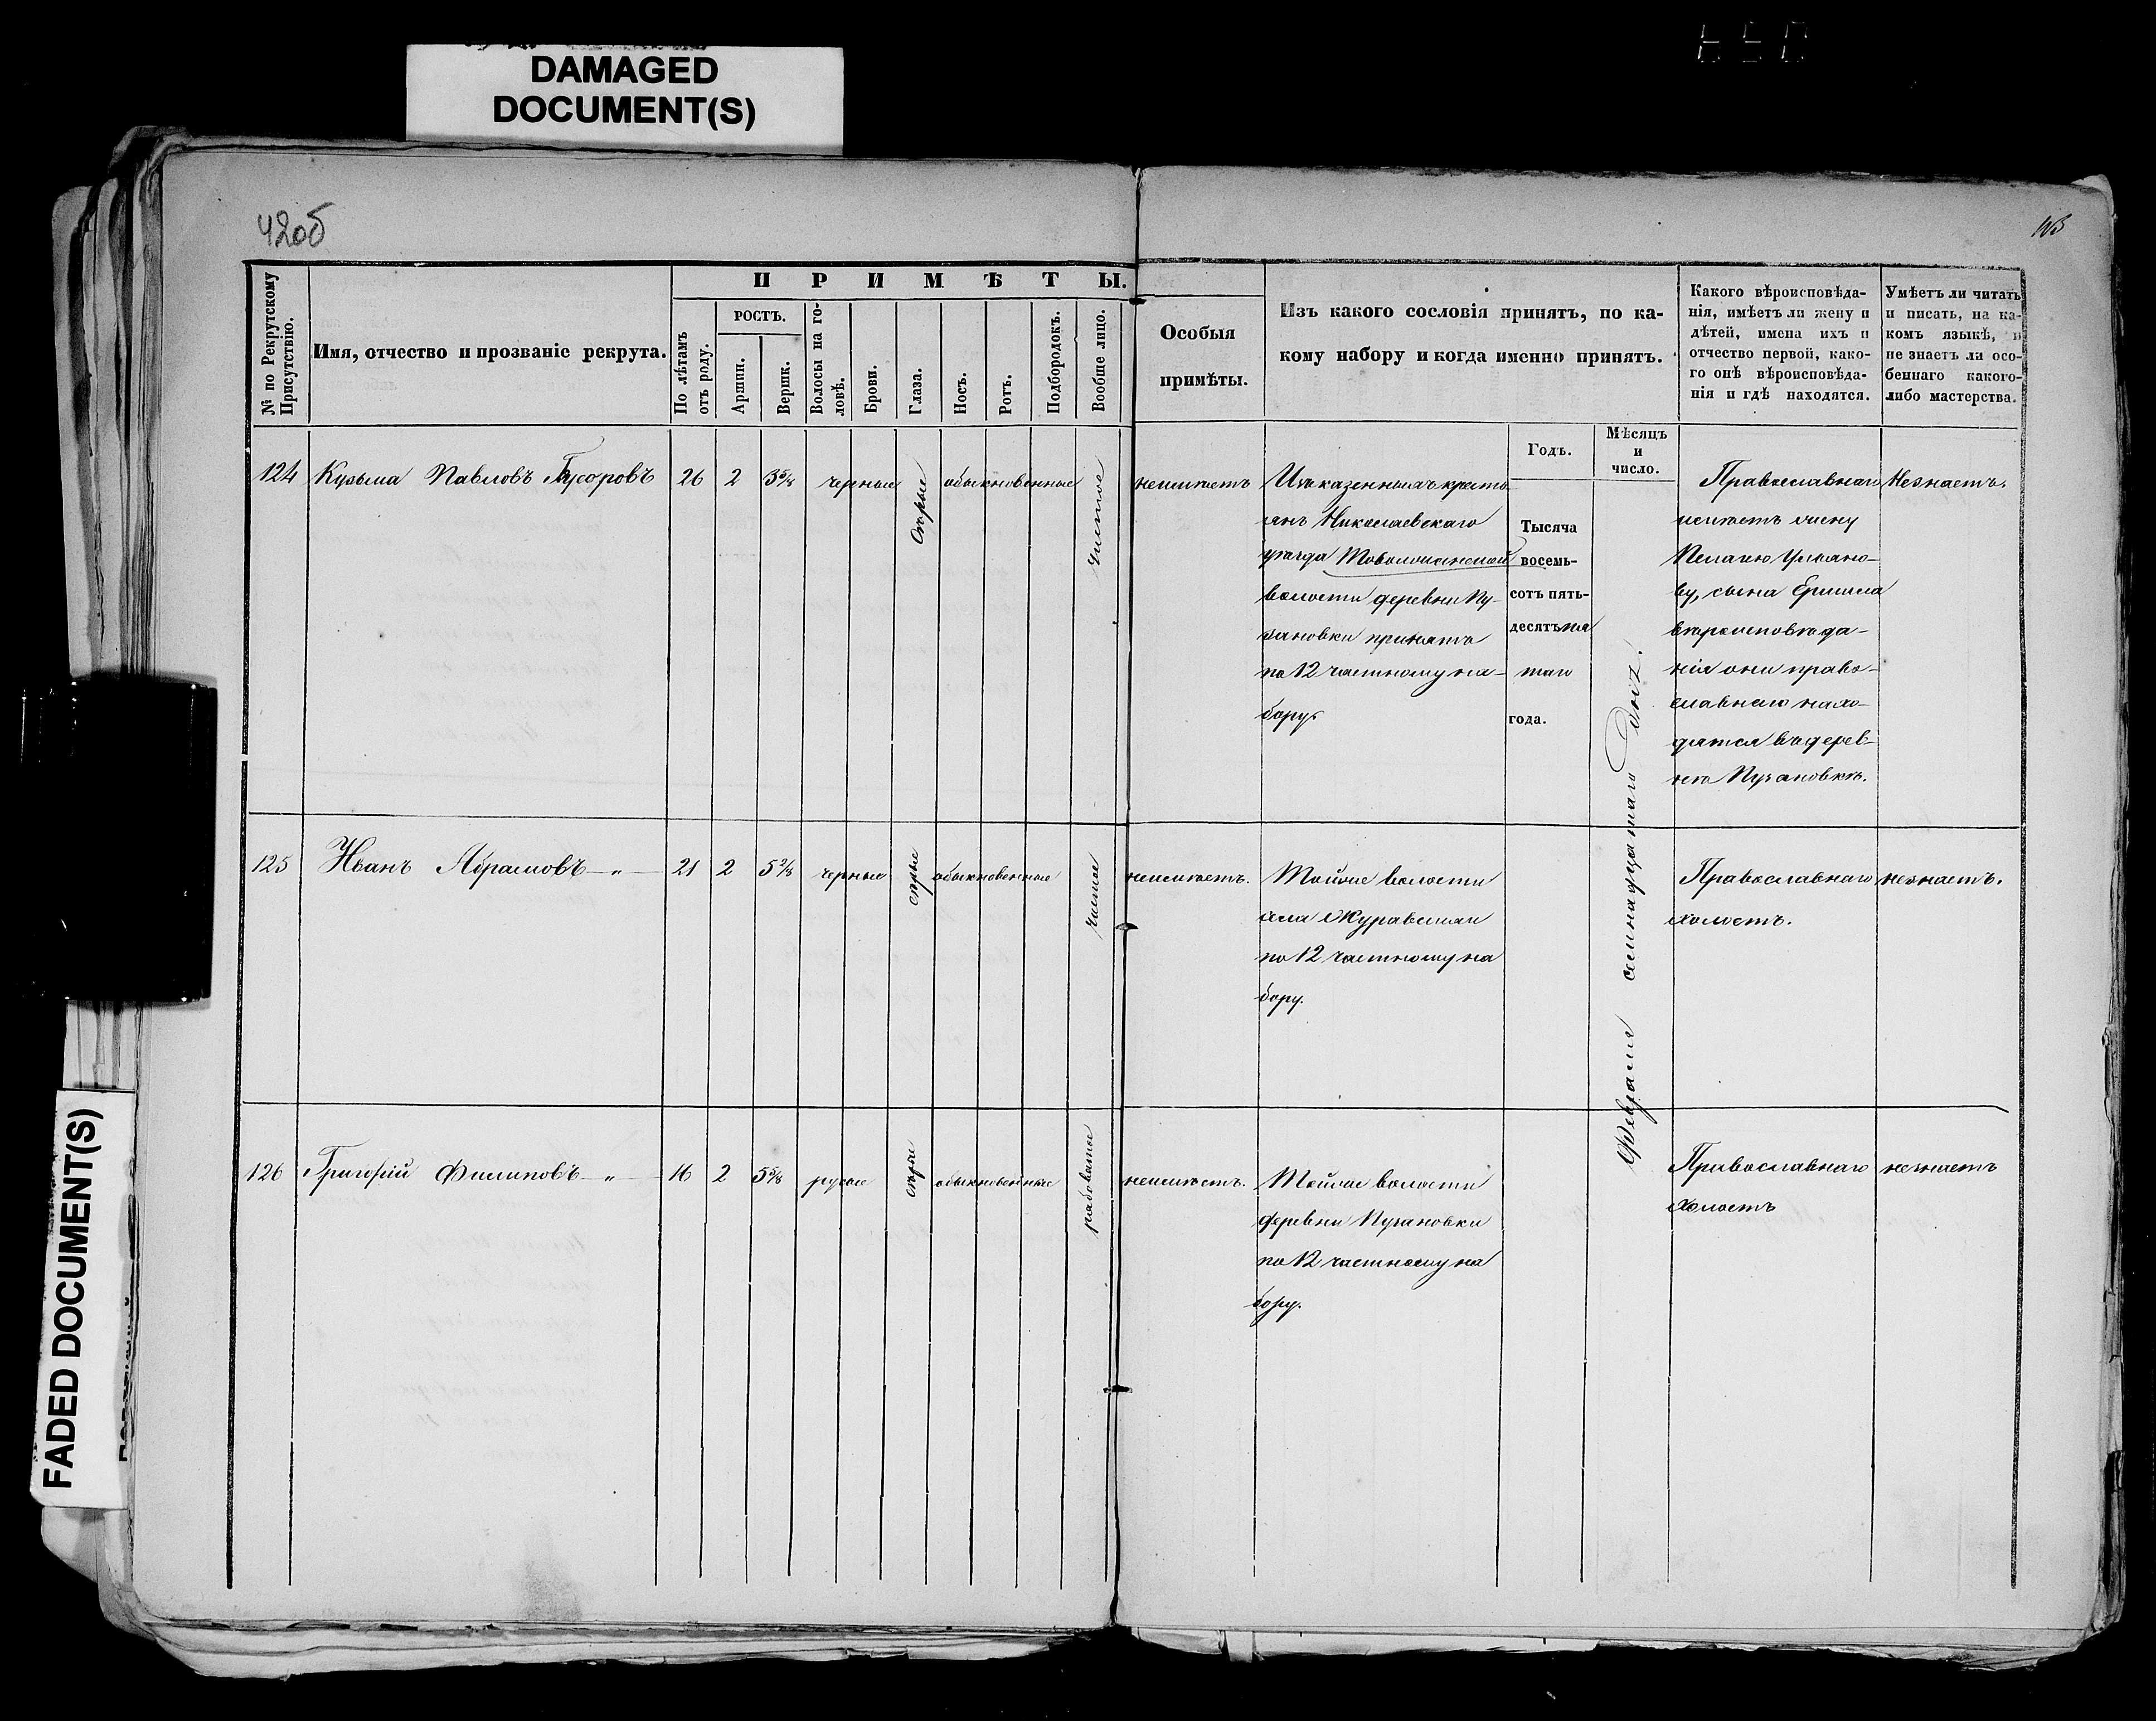 DAMAGED
DOCUMENT(S)
42об
П Р И М Ѣ Т Ы.
№ по Рекрутскому
Присутствію.
Имя, отчество и прозваніе рекрута.
По лѣтамъ
отъ роду.
РОСТЪ.
Аршин.
Вершк.
Волосы на го-
ловѣ.
Брови.
Глаза.
Носъ.
Ротъ.
Подбородокъ.
Вообще лицо.
Особыя
примѣты.
Изъ какого сословія принятъ, по ка-
кому набору и когда именно принятъ.
Какого вѣроисповѣда-
нія, имѣетъ ли жену и
дѣтей, имена ихъ и
отчество первой, како-
го онѣ вѣроисповѣда-
нія и гдѣ находятся.
Умѣетъ ли читать
и писать, на ка-
комъ языкѣ, и
не знаетъ ли осо-
беннаго какого-
либо мастерства.
Годъ.
Мѣсяцъ
и
число.
124 Кузьма Павловъ 26 2 3 5/8 черные сѣрые обыкновенные чистое неимѣетъ
Изъ казенныхъ кресть
янъ Николаевскаго
уѣзда
волости деревни Пу-
зановки принятъ
по 12 частному на-
бору
Тысяча
восемь-
сотъ пять-
десятъ пя
таго
года.
Февраля семнадцатаго дня.
Православнаго
имѣетъ жену
Пелагею Ульяно-
ву, сына
вѣроисповѣда-
нія они право-
славнаго нахо-
дятся въ дерев-
нѣ Пузановкѣ.
Незнаетъ.
125 Иванъ Абрамовъ — „ — 21 2 5 2/8 черные сѣрые обыкновенные чистое неимѣетъ.
Тойже волости
села Журавлихи
по 12 частному на
бору.
Православнаго
холостъ.
незнаетъ.
126 Григорій Филиповъ — „ — 16 2 5 5/8 русые сѣрые обыкновенные рябоватое неимѣетъ.
Тойже волости
деревни Пузановки
по 12 частному на
бору.
Православнаго
холостъ
незнаетъ
FADED DOCUMENT(S)